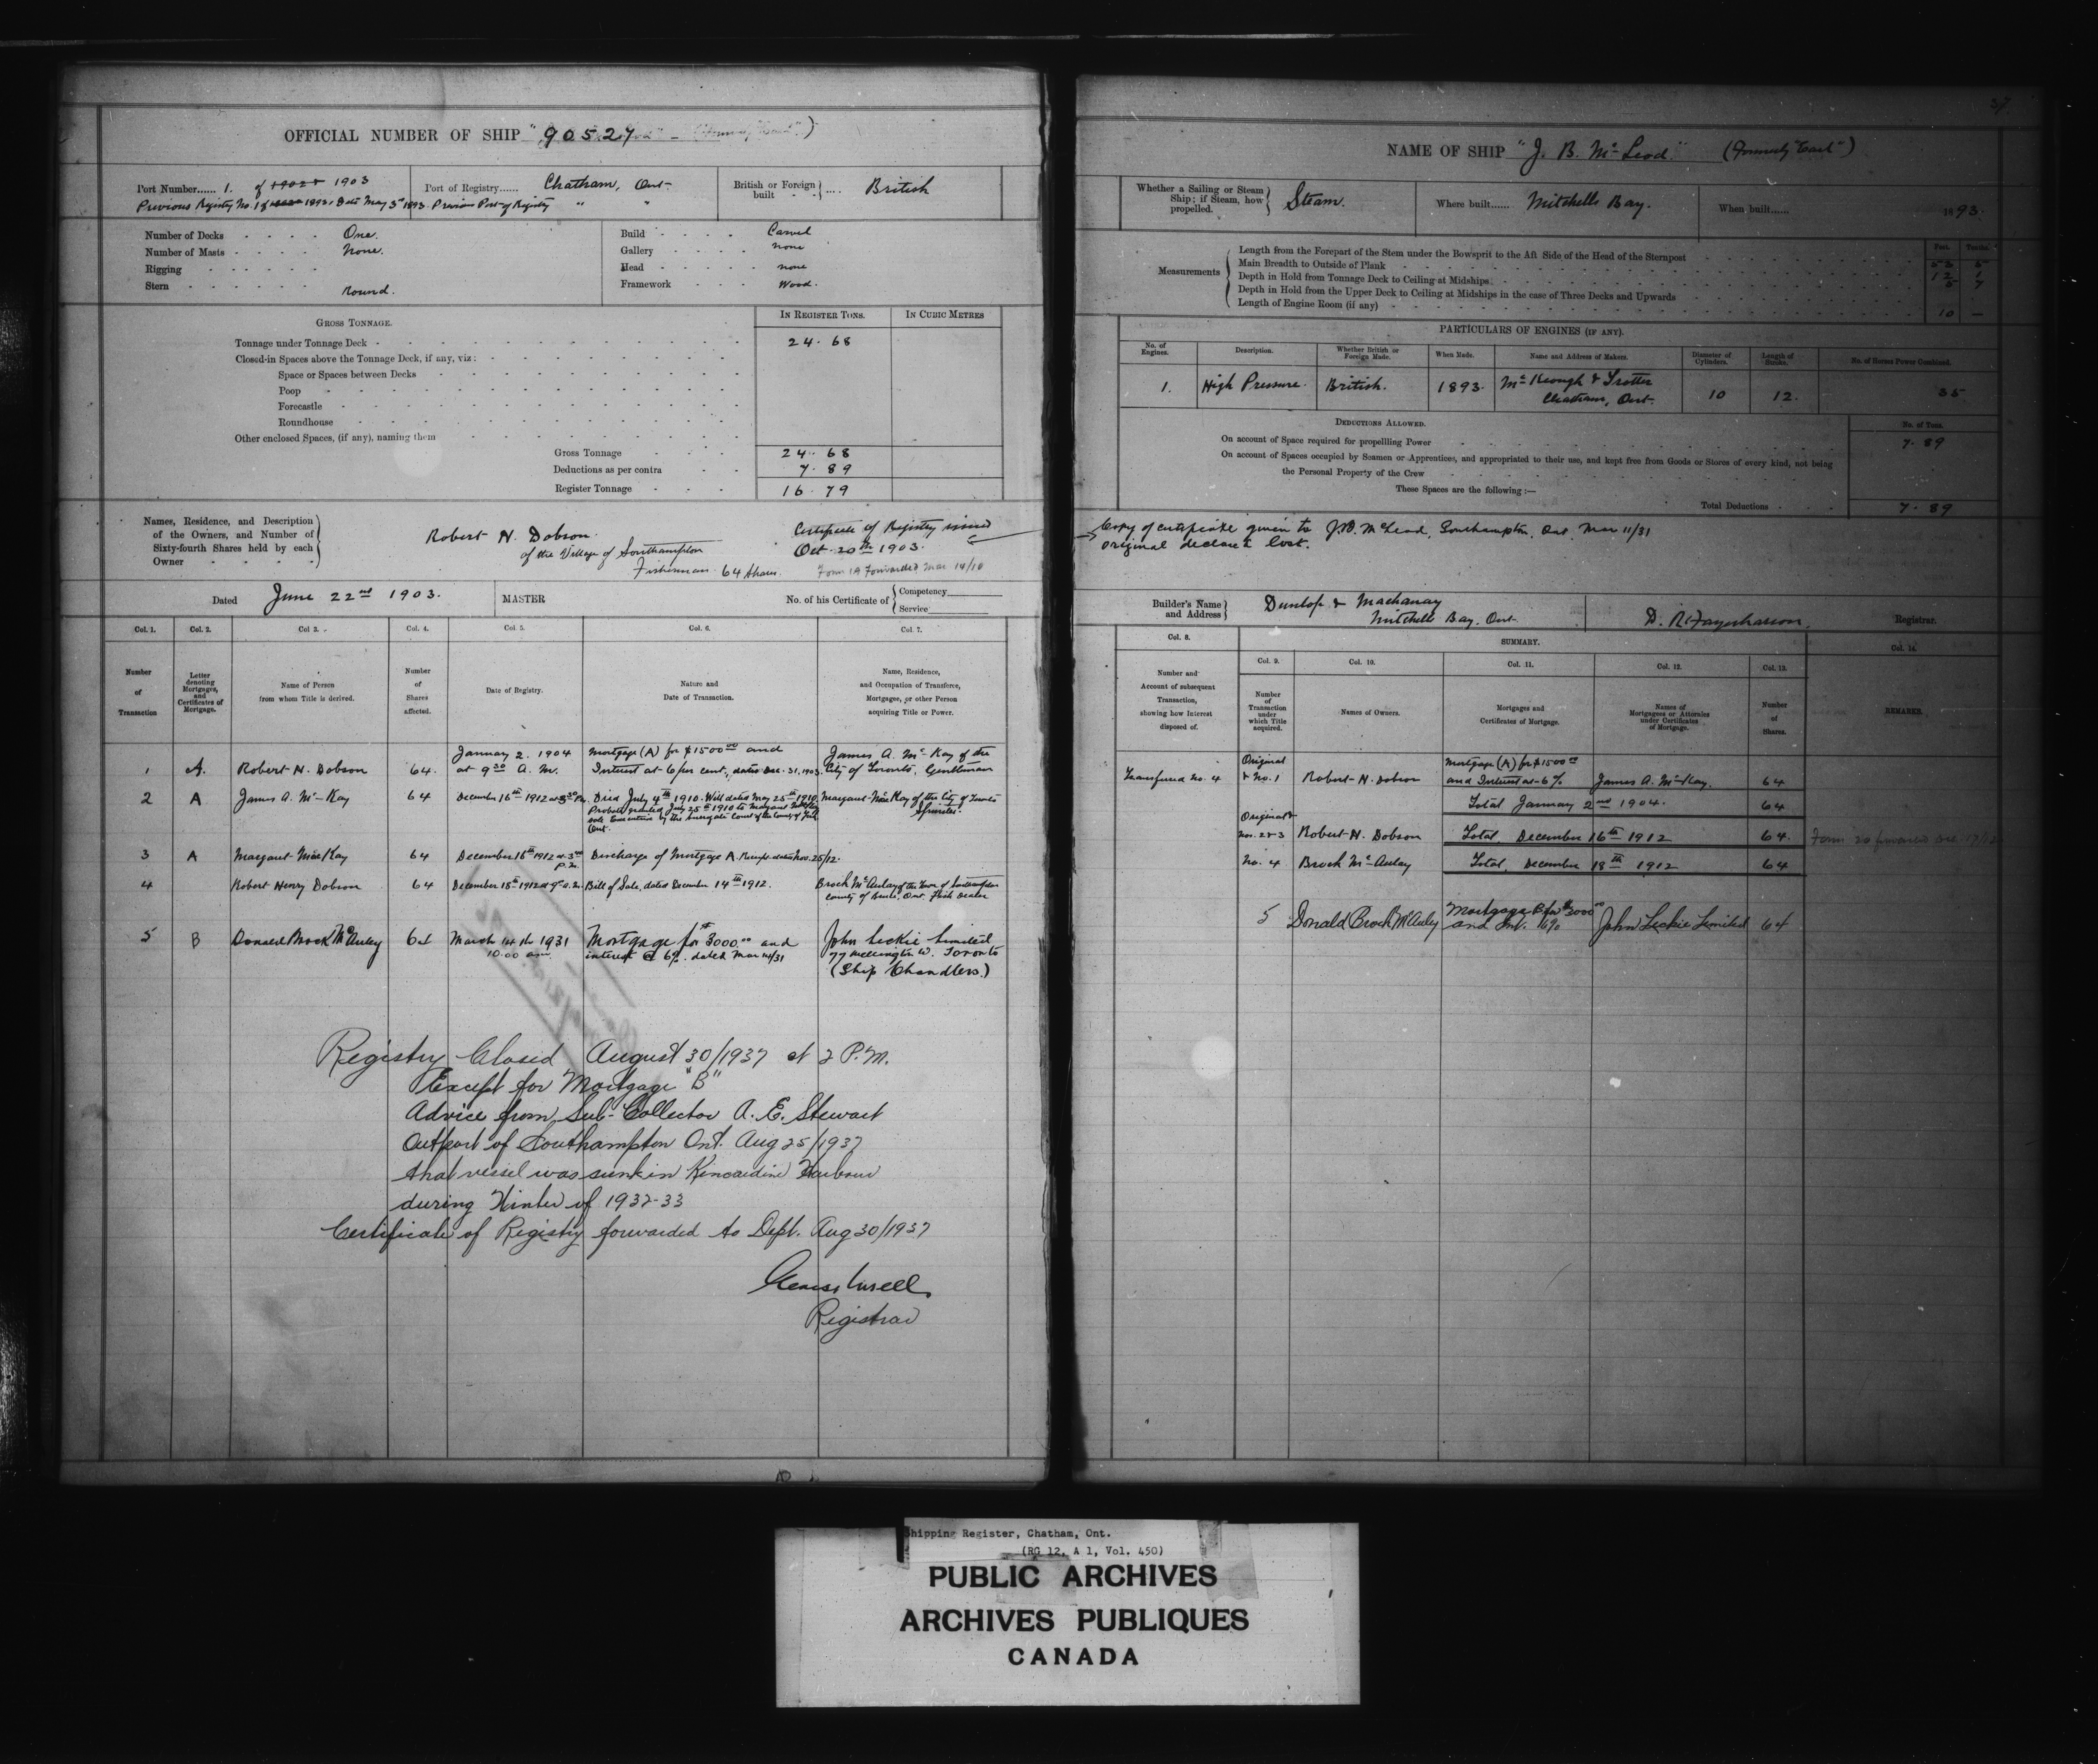 OFFICIAL NUMBER OF SHIP "90527
Port Number...... 1. of 1903
Port of Registry...... Chatham, Ont-
British or Foreign built .... British
Previous Registry No. 1 of 1893, Date May 3rd 1893. Previous Port of Registry " "
Number of Decks - - - - One.
Number of Masts - - - - None.
Rigging - - - - - -
Stern - - - - - - Round.
Build - - - - Carvel
Gallery - - - - none
Head - - - - - none
Framework - - - Wood.
GROSS TONNAGE.
IN REGISTER TONS.
IN CUBIC METRES
Tonnage under Tonnage Deck - 24. 68
Closed-in Spaces above the Tonnage Deck, if any, viz:
Space or Spaces between Decks
Poop
Forecastle
Roundhouse
Other enclosed Spaces, (if any), naming them
Gross Tonnage - - - 24. 68
Deductions as per contra - - 7. 89
Register Tonnage - - - 16. 79
Names, Residence, and Description of the Owners, and Number of Sixty-fourth Shares held by each Owner
Robert H. Dobson.
of the Village of Southampton
Fisherman 64 Shares.
Certificate of Registry issued
Oct. 20th 1903.
Form 19 Forwarded Mar 14/10
Dated June 22nd 1903.
MASTER
No. of his Certificate of Competency Service
Col. 1. Col. 2. Col 3. Col. 4. Col. 5. Col. 6. Col. 7.
Number of Transaction
Letter denoting Mortgages, and Certificates of Mortgage.
Name of Person from whom Title is derived.
Number of Shares affected.
Date of Registry.
Nature and Date of Transaction.
Name, Residence, and Occupation of Transferee, Mortgagee, or other Person acquiring Title or Power.
1 A. Robert H. Dobson 64. January 2. 1904 at 9 30 A. M. Mortgage (A) for $1500 00 and Interest at 6 per cent., dated Dec. 31, 1903. James A. McKay of the City of Toronto, Gentleman
2 A James A. McKay 64 December 16th 1912 at 3 30 P.M. Died July 4th 1910. Will dated May 25th 1910. Probate granted July 25th 1910 to Margaret MacKay sole Executrix by the Surrogate Court of the County of York Ont. Margaret MacKay of the City of Toronto Spinster.
3 A Margaret MacKay 64 December 16th 1912 at 3 P.M. Discharge of Mortgage A. Receipt dated Nov. 25/12.
4 Robert Henry Dobson 64 December 18th 1912 at 9 a.m. Bill of Sale, dated December 14th 1912. Brock McAulay of the Town of Southampton County of Bruce, Ont. Fish Dealer
5 B Donald Brock McAuley 64 March 14th 1931 10.00 am Mortgage for $3000.00 and interest @ 6%. dated Mar 14/31 John Leckie Limited 77 Wellington W. Toronto (Ship Chandlers.)
Registry Closed August 30/1937 at 2 P.M.
Except for Mortgage "B"
Advice from Sub-Collector A. E. Stewart
Outport of Southampton Ont. Aug 25/1937
that vessel was sunk in Kincardine Harbour
during Winter of 1932-33
Certificate of Registry forwarded to Dept. Aug 30/1937
Registrar
37.
NAME OF SHIP "J. B. McLeod." (Formerly "Earl")
Whether a Sailing or Steam Ship; if Steam, how propelled. Steam.
Where built...... Mitchells Bay.
When built...... 1893.
Measurements
Feet. Tenths.
Length from the Forepart of the Stem under the Bowsprit to the Aft Side of the Head of the Sternpost
Main Breadth to Outside of Plank 12 1
Depth in Hold from Tonnage Deck to Ceiling at Midships 5 7
Depth in Hold from the Upper Deck to Ceiling at Midships in the case of Three Decks and Upwards
Length of Engine Room (if any) 10 —
PARTICULARS OF ENGINES (IF ANY).
No. of Engines. Description. Whether British or Foreign Made. When Made. Name and Address of Makers. Diameter of Cylinders. Length of Stroke. No. of Horses Power Combined.
1. High Pressure. British. 1893. McKeough & Trotter Chatham, Ont. 10 12. 35
DEDUCTIONS ALLOWED.
No. of Tons.
On account of Space required for propelling Power 7. 89
On account of Spaces occupied by Seamen or Apprentices, and appropriated to their use, and kept free from Goods or Stores of every kind, not being the Personal Property of the Crew
These Spaces are the following :—
Total Deductions 7. 89
Copy of certificate given to J.B. McLeod, Southampton, Ont. Mar 11/31
original declared lost.
Builder's Name and Address Dunlop & Mitchells Bay. Ont.
Registrar.
Col. 8. SUMMARY. Col. 14.
Col. 9. Col. 10. Col. 11. Col. 12. Col. 13.
Number and Account of subsequent Transaction, showing how Interest disposed of.
Number of Transaction under which Title acquired.
Names of Owners.
Mortgages and Certificates of Mortgage.
Names of Mortgagees or Attornies under Certificates of Mortgage.
Number of Shares.
REMARKS.
Transferred No. 4 Original & No. 1 Robert H. Dobson Mortgage (A) for $1500 00 and Interest at 6% James A. McKay. 64
Total January 2nd 1904. 64
Original & Nos. 2 & 3 Robert H. Dobson Total, December 16th 1912 64.
No. 4 Brock McAulay Total, December 18th 1912 64
5 Donald Brock McAuley Mortgage B for $3000 00 and Int. 6% John Leckie Limited 64
Shipping Register, Chatham, Ont.
(RG 12, A 1, Vol. 450)
PUBLIC ARCHIVES
ARCHIVES PUBLIQUES
CANADA